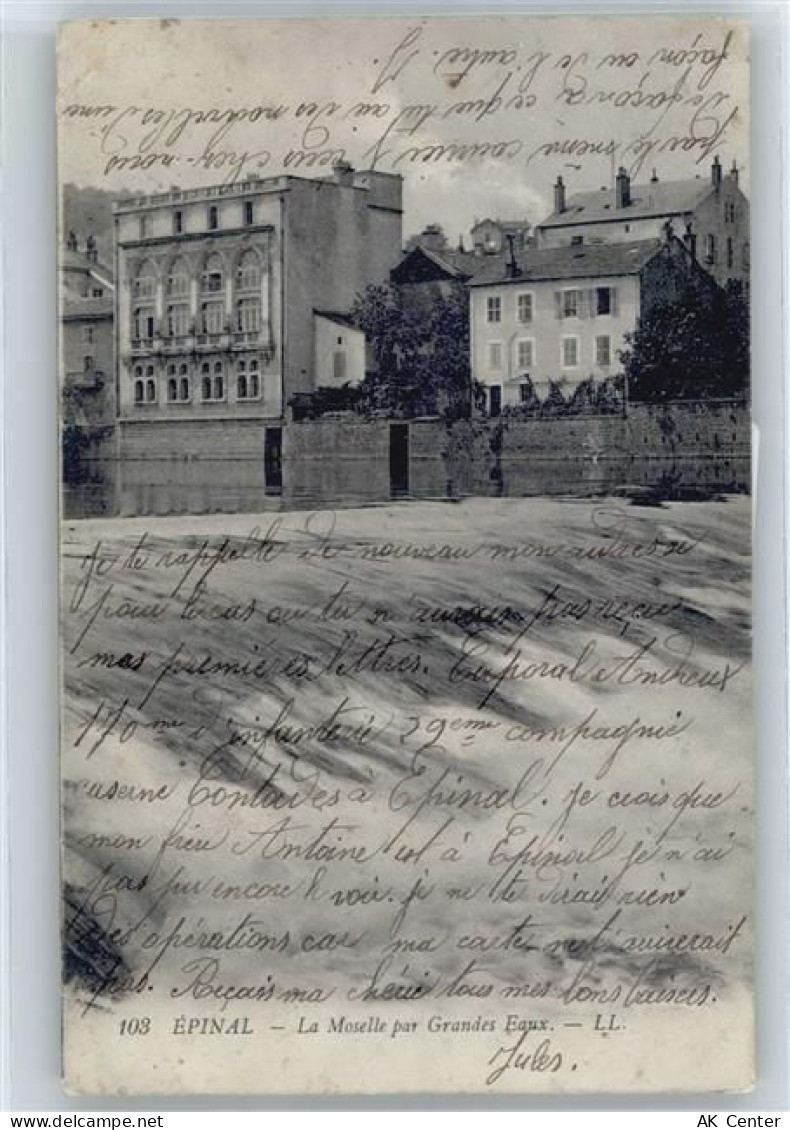 Je te rappelle de nouveau mon adresse
pour le cas ou tu n'aurais pas reçu
mes premières lettres. Caporal Andreux
170me d'infanterie 29eme compagnie
caserne Contades à Epinal. Je crois que
mon frère Antoine est à Epinal je n'ai
pas pu encore le voir. je ne te dirai rien
des opérations car ma carte ne t'arriverait
pas. Reçois ma chérie tous mes bons baisers.
Jules.
par le même courrier J
de façon a ce que tu ai des nouvelles d'une
façon ou de l'autre. J
103 ÉPINAL - La Moselle par Grandes Eaux. - LL.
AK Center